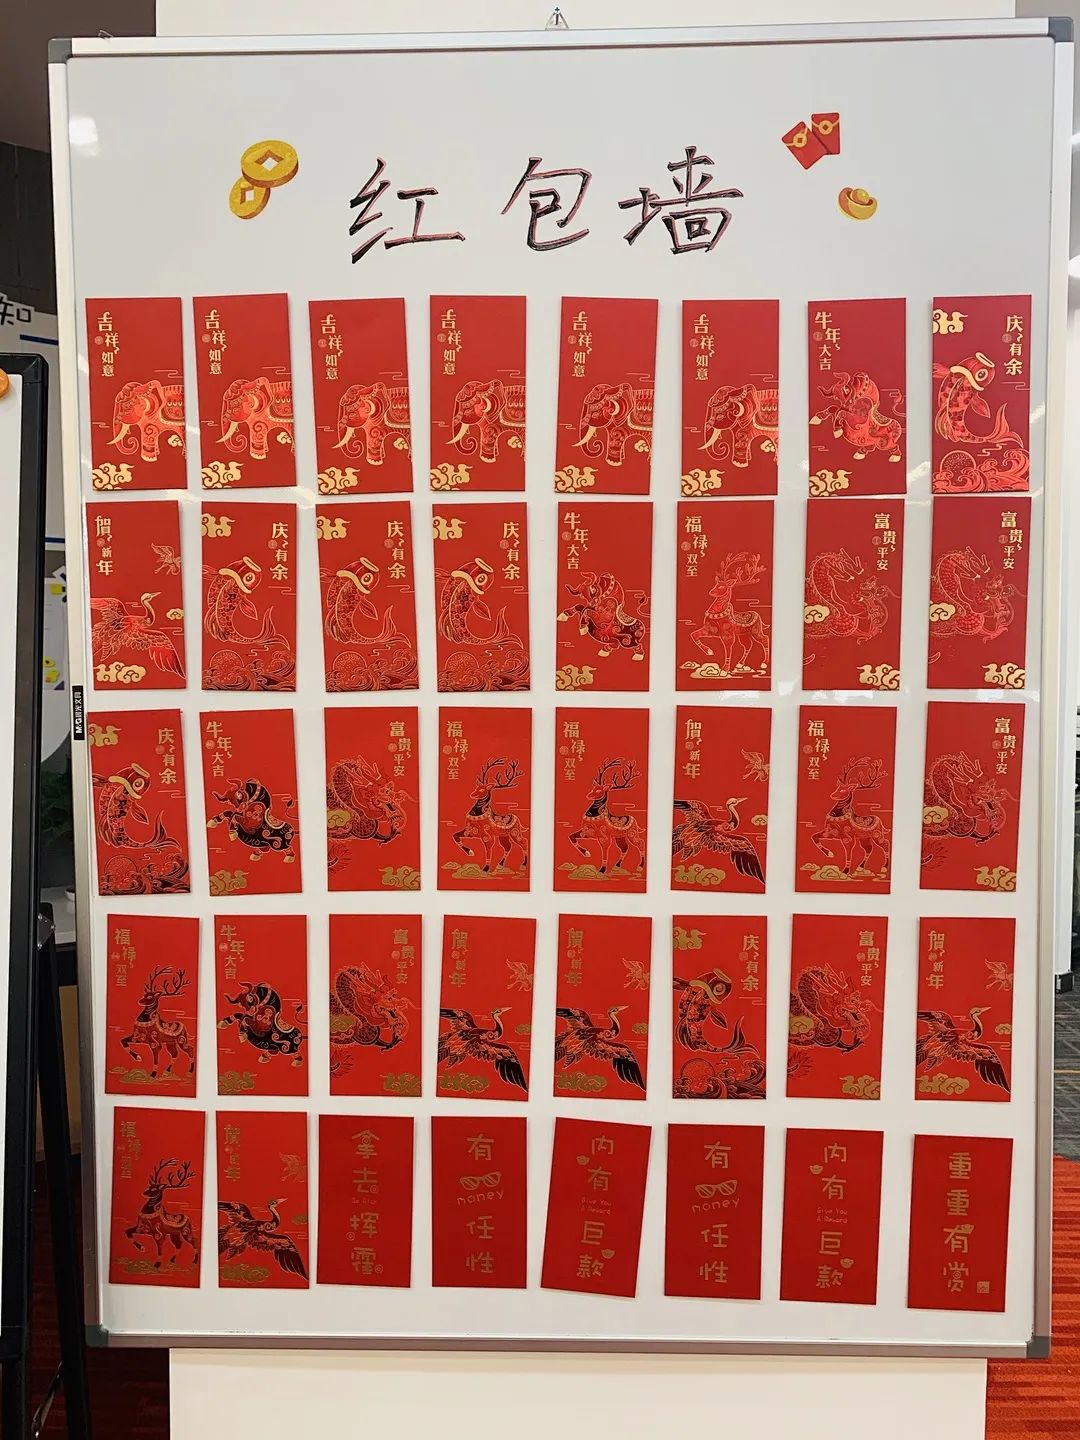 红包墙
知
吉祥如意
吉祥如意
吉祥如意
吉祥如意
吉祥如意
吉祥如意
牛年大吉
庆有余
贺新年
庆有余
庆有余
庆有余
牛年大吉
福禄双至
富贵平安
富贵平安
M&G晨光文具
庆有余
牛年大吉
富贵平安
福禄双至
福禄双至
贺新年
福禄双至
富贵平安
福禄双至
牛年大吉
富贵平安
贺新年
贺新年
庆有余
富贵平安
贺新年
福禄双至
贺新年
拿去挥霍
有money任性
内有Give You A Reward巨款
有money任性
内有Give You A Reward巨款
重重有赏